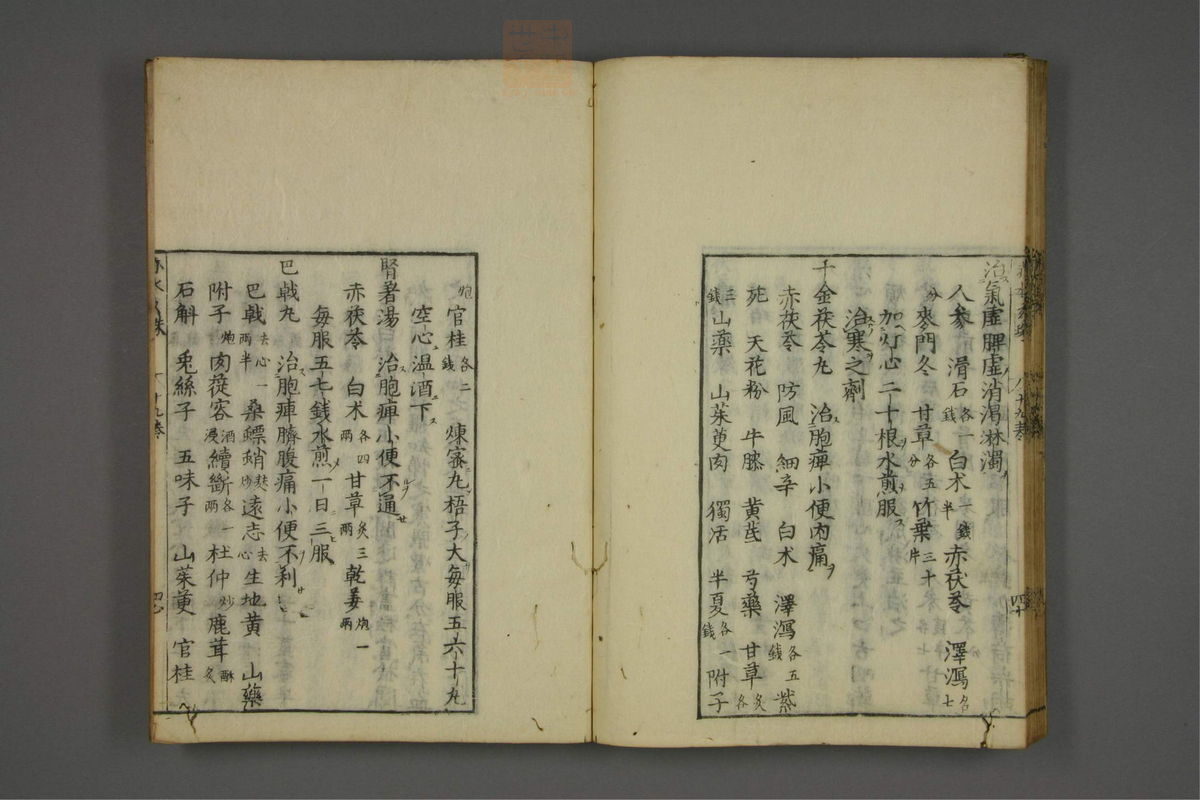 治氣虛脾虛消渴淋濁
人參 滑石各一錢 白术一錢半 赤茯苓 澤瀉各七
分 麥門冬 甘草各五分 竹葉三十片
加灯心二十根水煎服
治寒之劑
千金茯苓丸 治胞痺小便内痛
赤茯苓 防風 細辛 白术 澤瀉各五錢 紫
菀 天花粉 牛膝 黄芪 芍藥 甘草炙各
三錢 山藥 山茱萸肉 獨活 半夏各一錢 附子
炮 官桂各二錢 煉蜜丸梧子大每服五六十丸
空心温酒下
腎着湯 治胞痺小便不通
赤茯苓 白术各四兩 甘草炙三兩 乾姜炮一兩
每服五七錢水煎一日三服
巴戟丸 治胞痺臍腹痛小便不利
巴戟去心一兩半 桑螵蛸麩炒 遠志去心 生地黄 山藥
附子炮 肉蓯容酒浸 續斷各一兩 杜仲炒 鹿茸酥炙
石斛 兎絲子 五味子 山茱萸 官桂